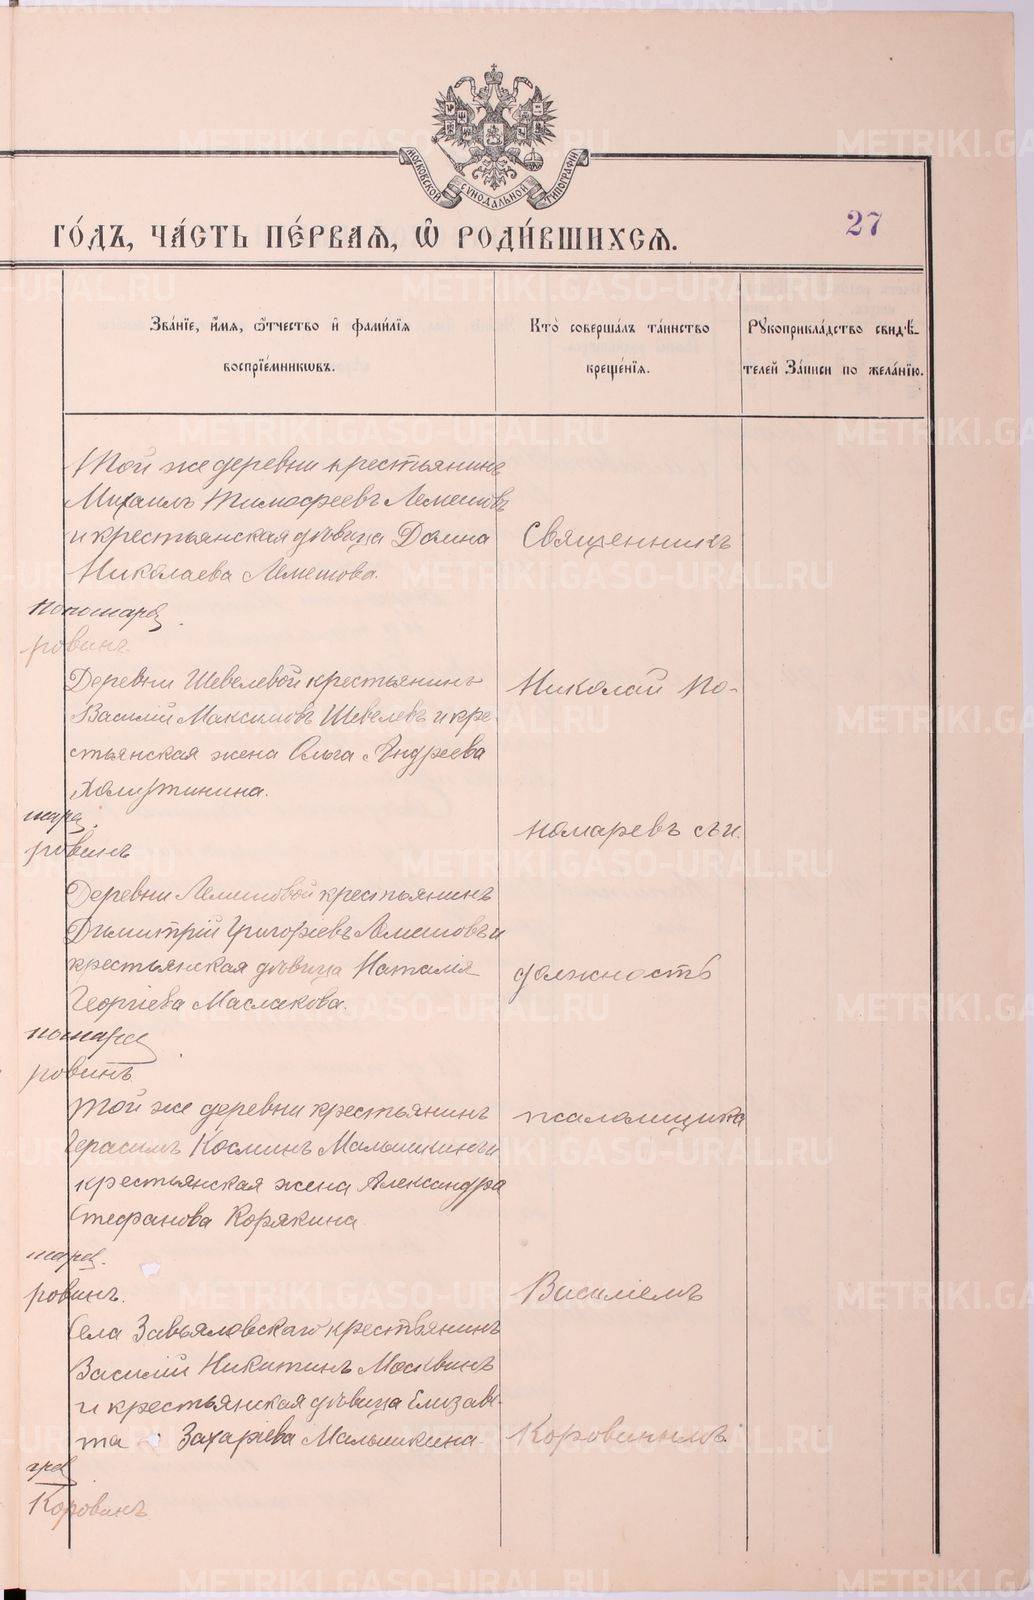 МОСКОВСКОЙ СѴНОДАЛЬНОЙ ТИПОГРАФІИ
ГО́ДЪ, ЧА́СТЬ ПЕ́РВАѦ, Ѡ҆ РОДИ́ВШИХСѦ.
27
Зва́нїе, и҆́мѧ, ѻ҆́тчество и҆ фами́лїѧ
воспрїе́мникѡвъ.
Кто̀ соверша́лъ та́инство
креще́нїѧ.
Рꙋкоприкла́дство свидѣ́-
телей За́писи по жела́нїю.
Той же деревни крестьянинъ
Михаилъ Тимофеевъ Лемешовъ
и крестьянская дѣвица Домна
Николаева Лемешова.
Священникъ
ровинъ
Деревни Шевелевой крестьянинъ
Василій Максимовъ Шевелевъ и кре-
стьянская жена Ольга Андреева
Николай По-
номаревъ съ и.
ровинъ
Деревни Лемешовой крестьянинъ
Димитрій Григорьевъ Лемешовъ и
крестьянская дѣвица Наталія
Георгіева Маслакова.
должность
ровинъ
Той же деревни крестьянинъ
Герасимъ Косминъ Малышкинъ и
крестьянская жена Александра
Стефанова Корякина
псаломщика
ровинъ.
Села Завьяловскаго крестьянинъ
Василій Никитинъ Москвинъ
и крестьянская дѣвица Елизаве-
та Захаріева Малышкина.
Василіемъ
Коровинымъ.
Коровинъ
METRIKI.GASO-URAL.RU